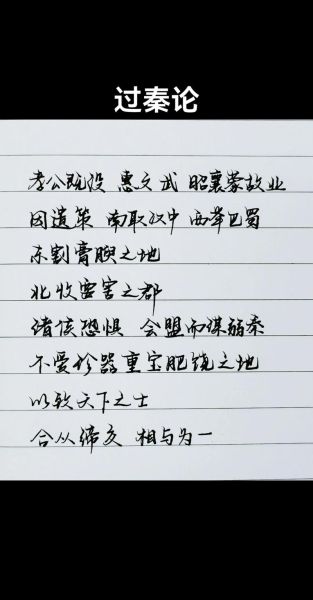 过秦论
孝公既没 惠文武 昭襄蒙故业
因遗策 南取汉中 西举巴蜀
东割膏腴之地
北收要害之郡
诸侯恐惧 会盟而谋弱秦
不爱珍器重宝肥饶之地
以致天下之士
合从缔交 相与为一